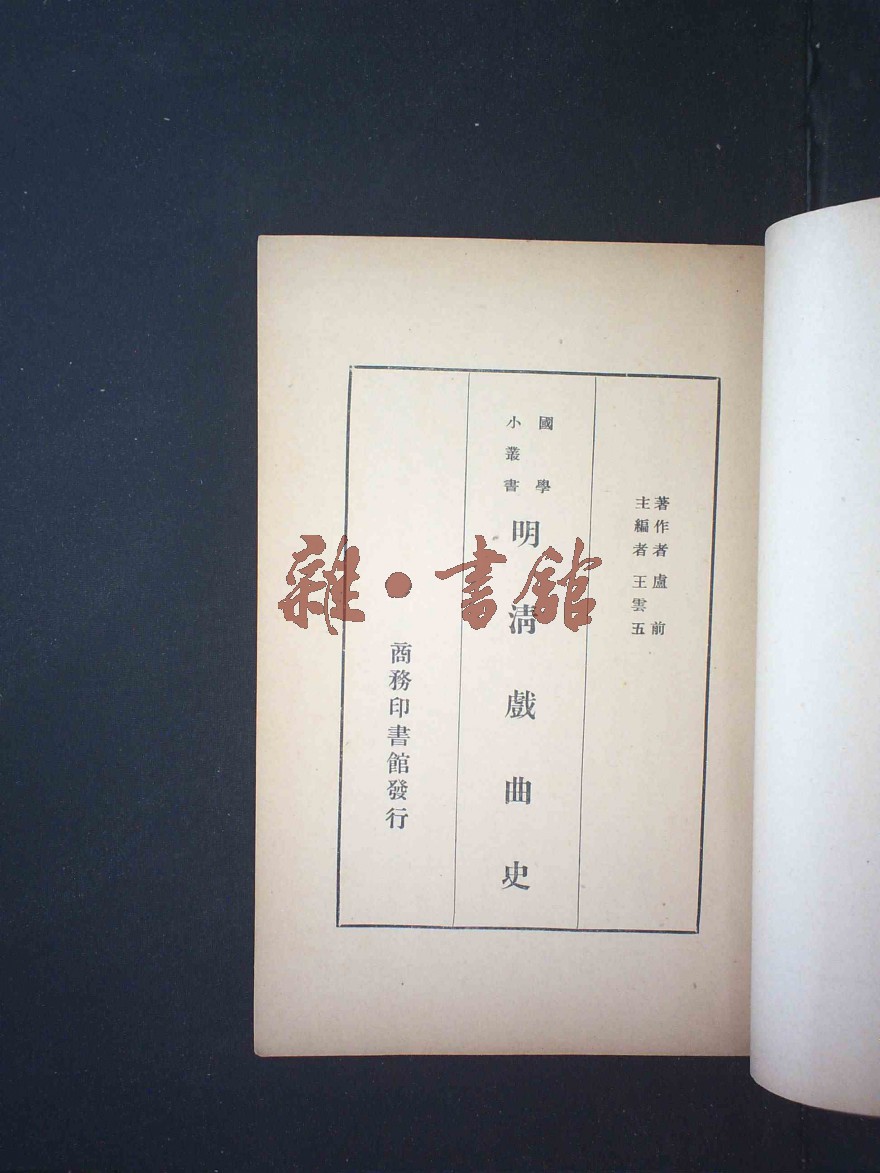 著作者 盧前
主編者 王雲五
國學
小叢書
明清戲曲史
商務印書館發行
雜·書館